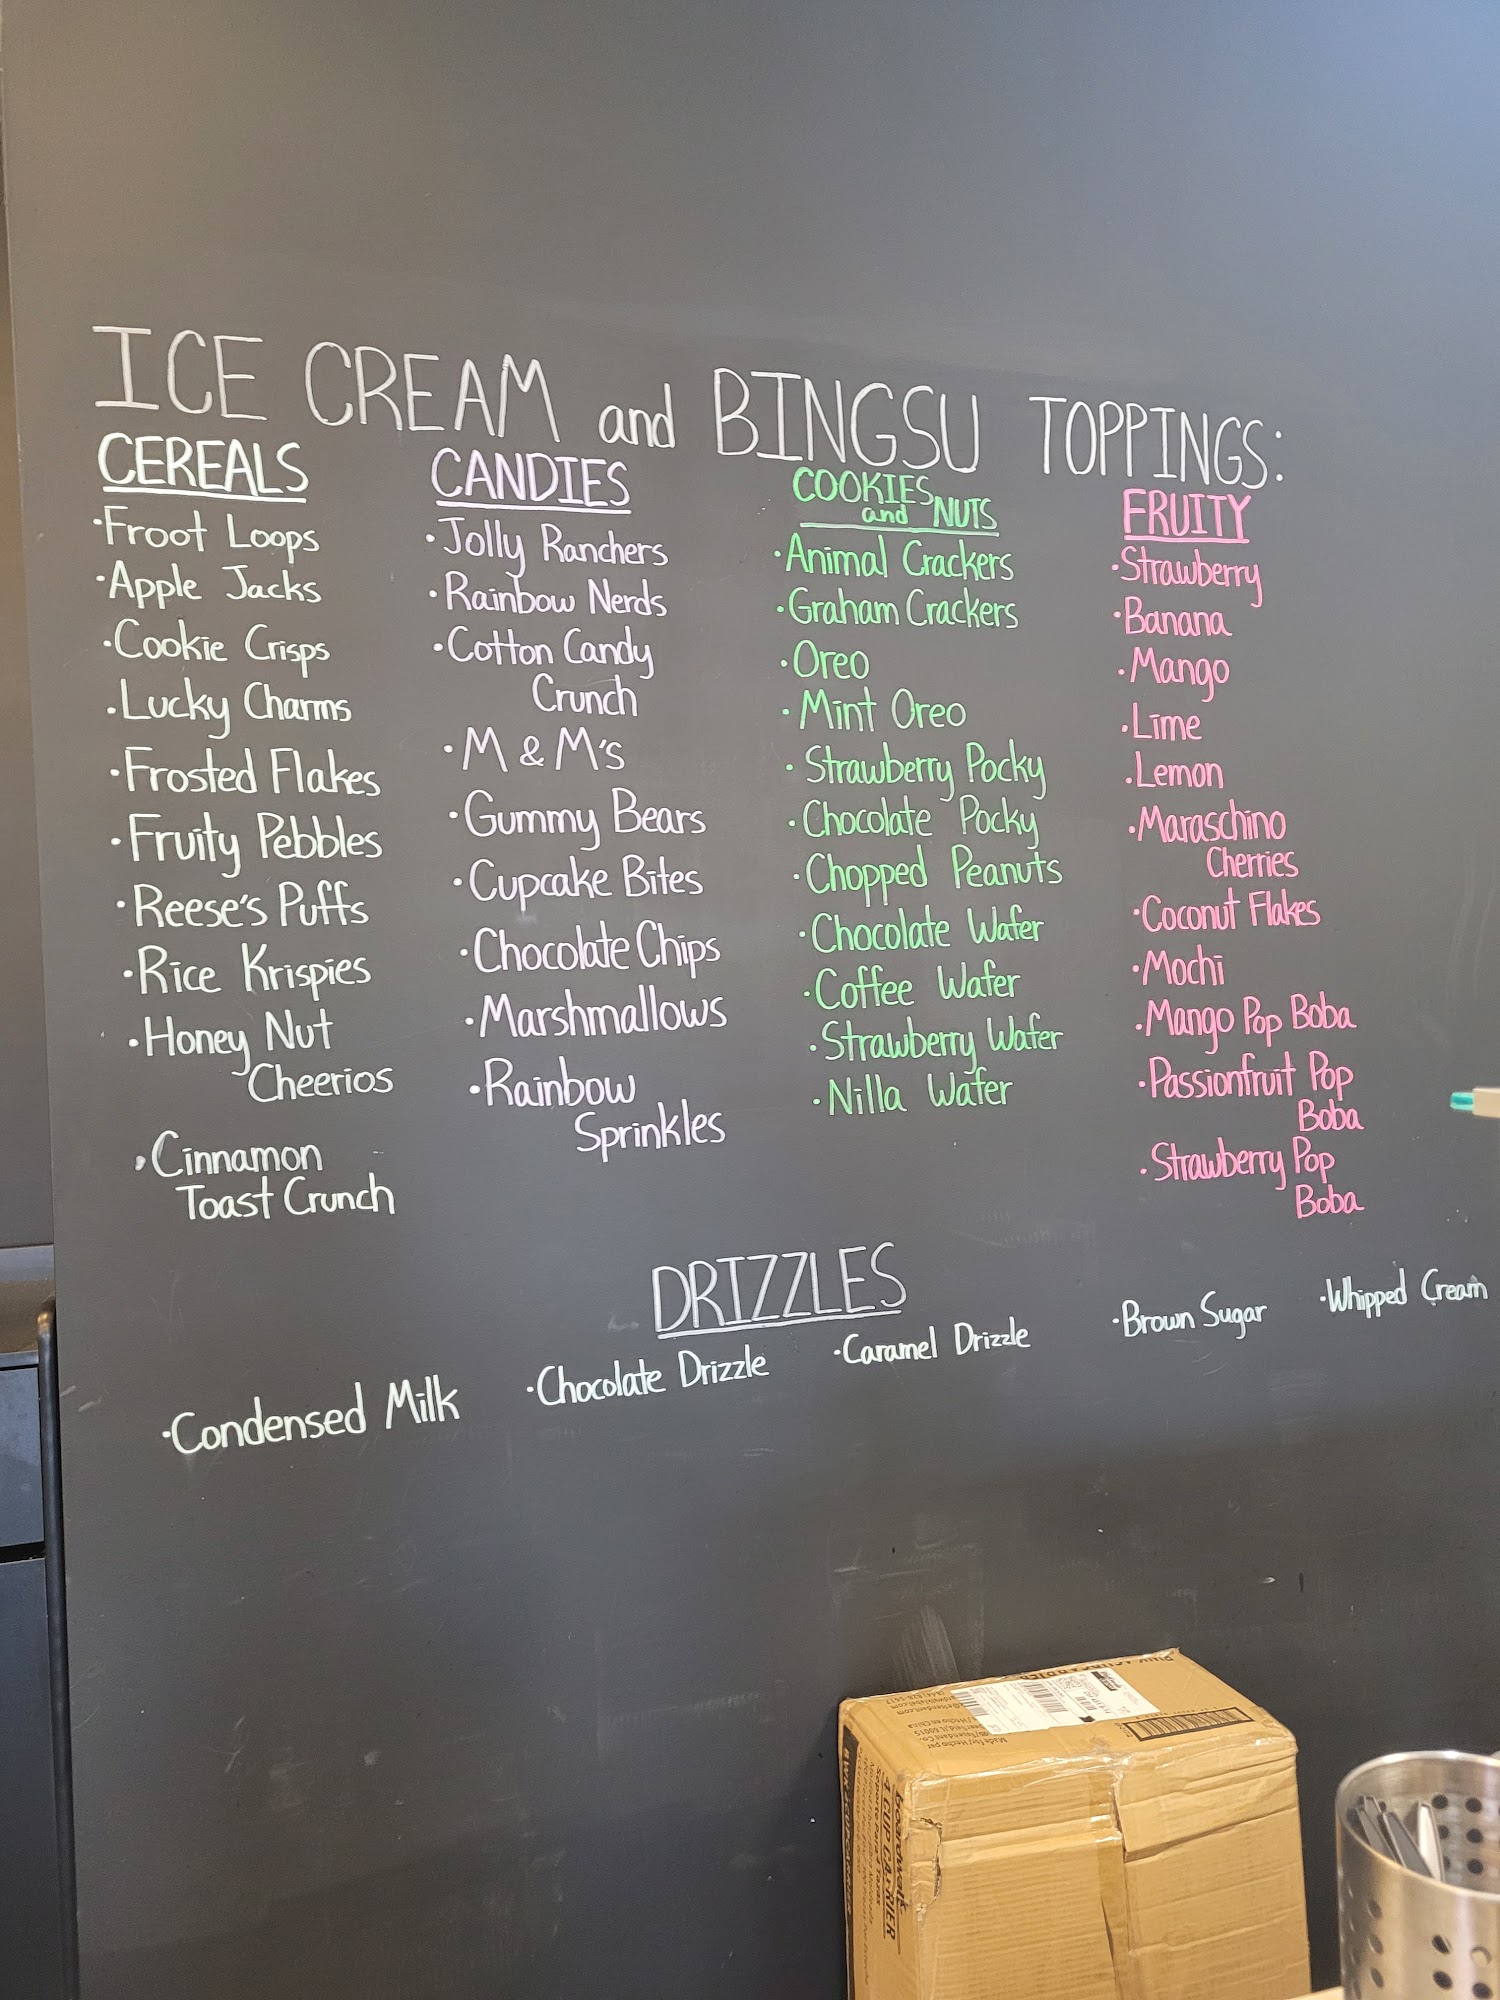 ICE CREAM and BINGSU TOPPINGS:
CEREALS
·Froot Loops
·Apple Jacks
·Cookie Crisps
·Lucky Charms
·Frosted Flakes
·Fruity Pebbles
·Reese's Puffs
·Rice Krispies
·Honey Nut
Cheerios
·Cinnamon
Toast Crunch
CANDIES
·Jolly Ranchers
·Rainbow Nerds
·Cotton Candy
Crunch
·M & M's
·Gummy Bears
·Cupcake Bites
·Chocolate Chips
·Marshmallows
·Rainbow
Sprinkles
COOKIES
and NUTS
·Animal Crackers
·Graham Crackers
·Oreo
·Mint Oreo
·Strawberry Pocky
·Chocolate Pocky
·Chopped Peanuts
·Chocolate Wafer
·Coffee Wafer
·Strawberry Wafer
·Nilla Wafer
FRUITY
·Strawberry
·Banana
·Mango
·Lime
·Lemon
·Maraschino
Cherries
·Coconut Flakes
·Mochi
·Mango Pop Boba
·Passionfruit Pop
Boba
·Strawberry Pop
Boba
DRIZZLES
·Condensed Milk
·Chocolate Drizzle
·Caramel Drizzle
·Brown Sugar
·Whipped Cream
boardwalk
4 CUP CARRIER
Soporte Para 4 Tazas